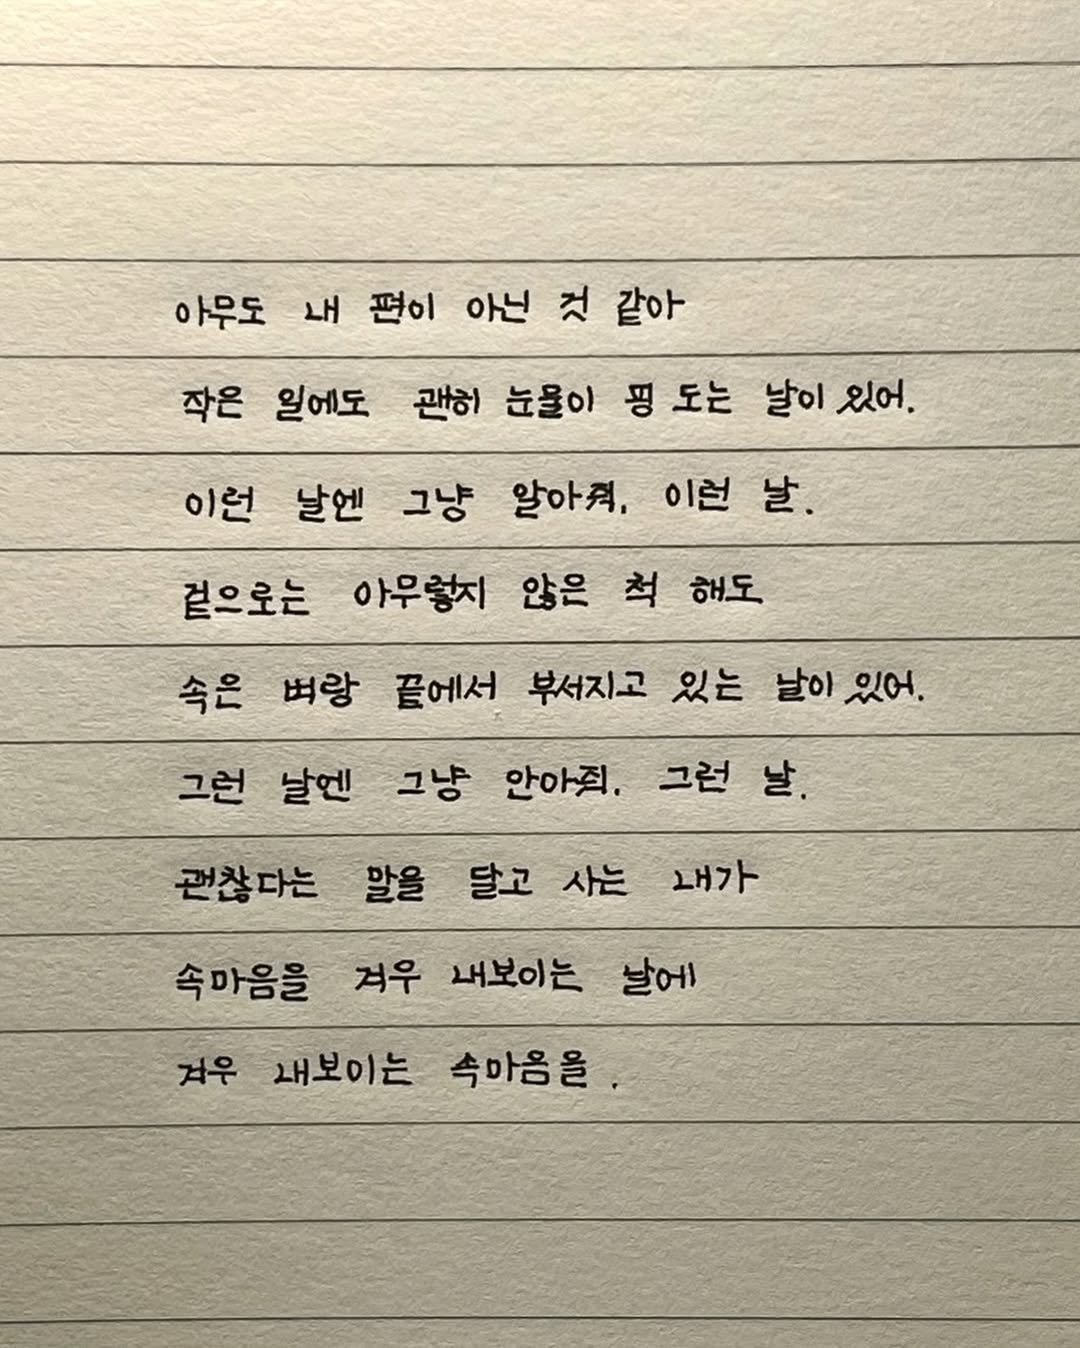 아무도 내 편이 아닌 것 같아
작은 일에도 괜히 눈물이 핑 도는 날이 있어.
이런 날엔 그냥 알아줘. 이런 날.
겉으로는 아무렇지 않은 척 해도
속은 벼랑 끝에서 부서지고 있는 날이 있어.
그런 날엔 그냥 안아줘. 그런 날.
괜찮다는 말을 달고 사는 내가
속마음을 겨우 내보이는 날에
겨우 내보이는 속마음을.